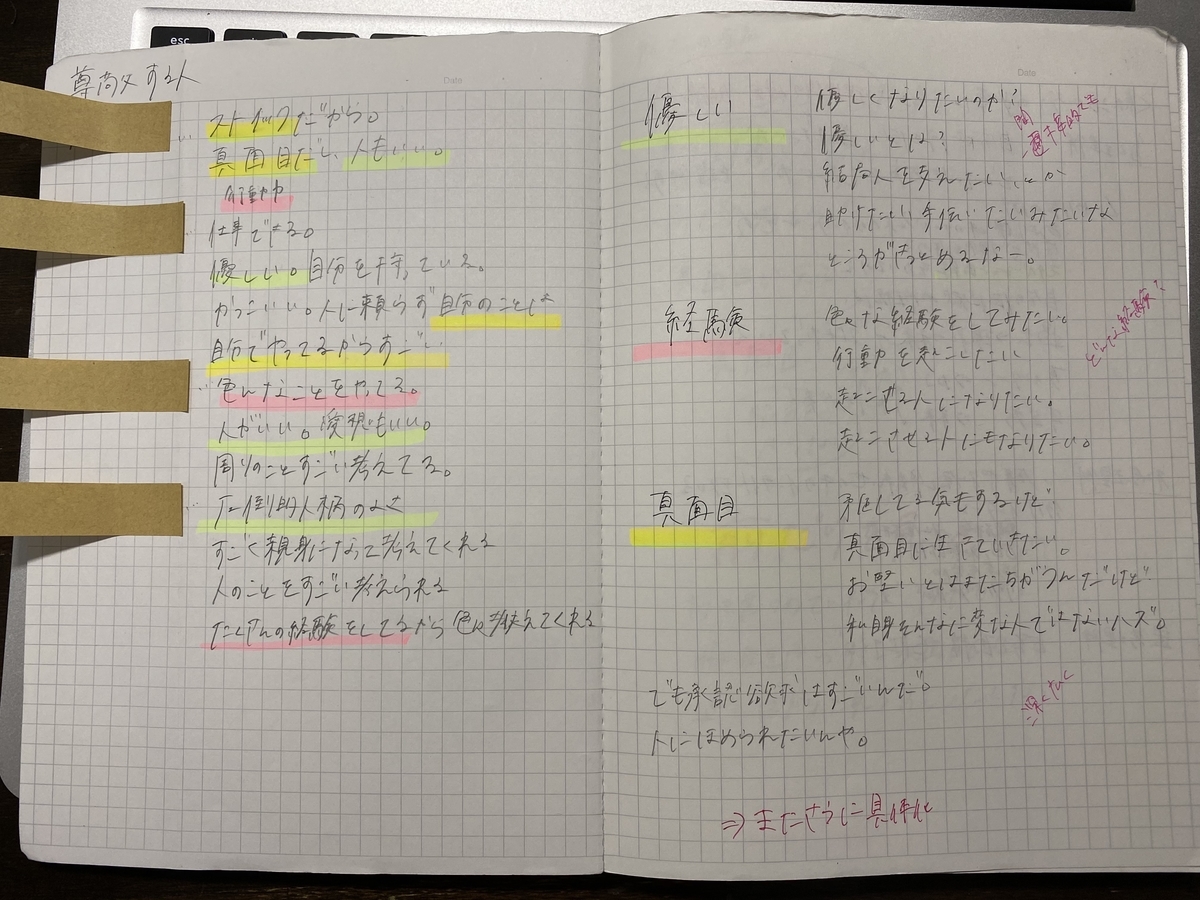 esc
Date
尊敬する人
ストイックだから。
真面目だし、人もいい。
行動力
仕事できる。
優しい。自分を持っている。
かっこいい。人に頼らず自分のことは
自分でやってるからすごい
色んなことをやってる。
人がいい。愛想もいい。
周りのことすごい考えてる。
圧倒的人柄のよさ
すごく親身になって考えてくれる
人のことをすごい考えられる
たくさんの経験をしてるから色々教えてくれる
Date
優しい
優しくなりたいのか?
優しいとは?
結局人を支えたい、とか
助けたい、手伝いたいみたいな
ところがまとめるなー。
経験
色々な経験をしてみたい。
どんな経験?
行動力を起こしたい
起こせる人になりたい。
起こさせる人にもなりたい。
真面目
矛盾してる気もするけど
真面目に生きていきたい。
お堅いとはまたちがうんだけど
私自身そんなに変な人ではないハズ。
でも承認欲求はすごいんだ。
人にほめられたいんや。
深くない
⇒まださらに具体化